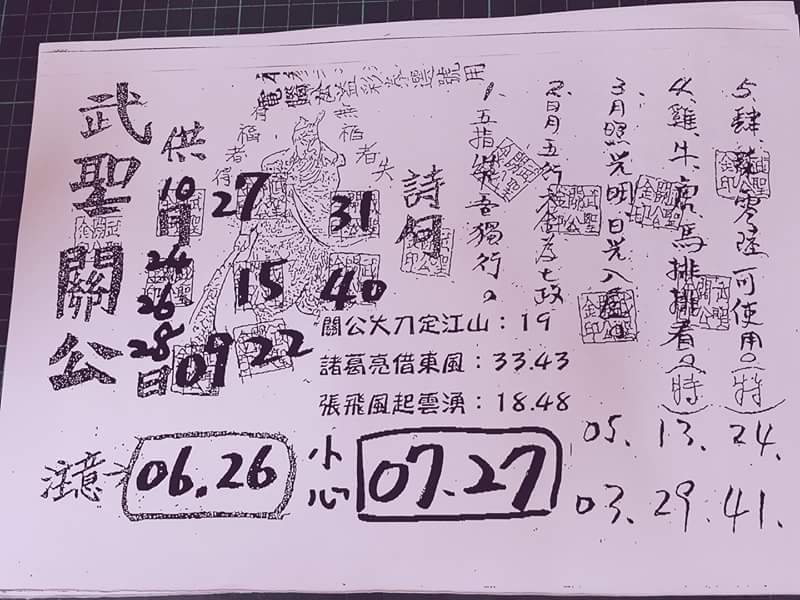 電腦公益彩券選號用
武聖關公
供
10月
24
26
28日
有福者得
無福者失
27
31
15
40
09
22
詩句
1、五指 吾獨行。
2、日月五行 為七政
3、月照光明日光入
4、雞、牛、虎、馬排排看。(特)
5、肆、 零、陸可使用。(特)
關公大刀定江山：19
諸葛亮借東風：33.43
張飛風起雲湧：18.48
注意
06.26
小心
07.27
05、13、24、
03、29、41、